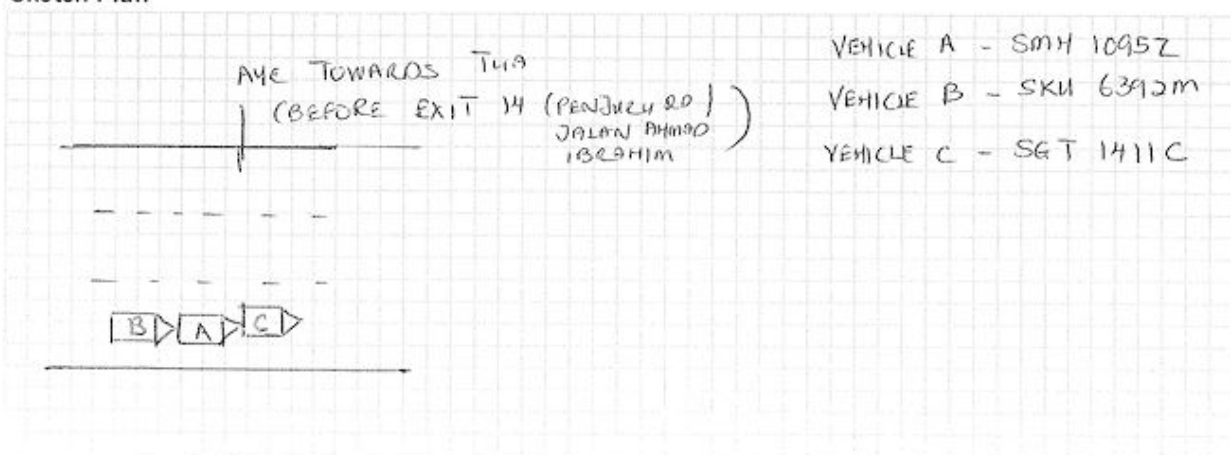 AYE TOWARDS TUA
(BEFORE EXIT 14 (PENJURU RD)
JALAN AHMAD
IBRAHIM
VEHICLE A - SMH 1095Z
VEHICLE B - SKU 6392M
VEHICLE C - SGT 1411C
B A C